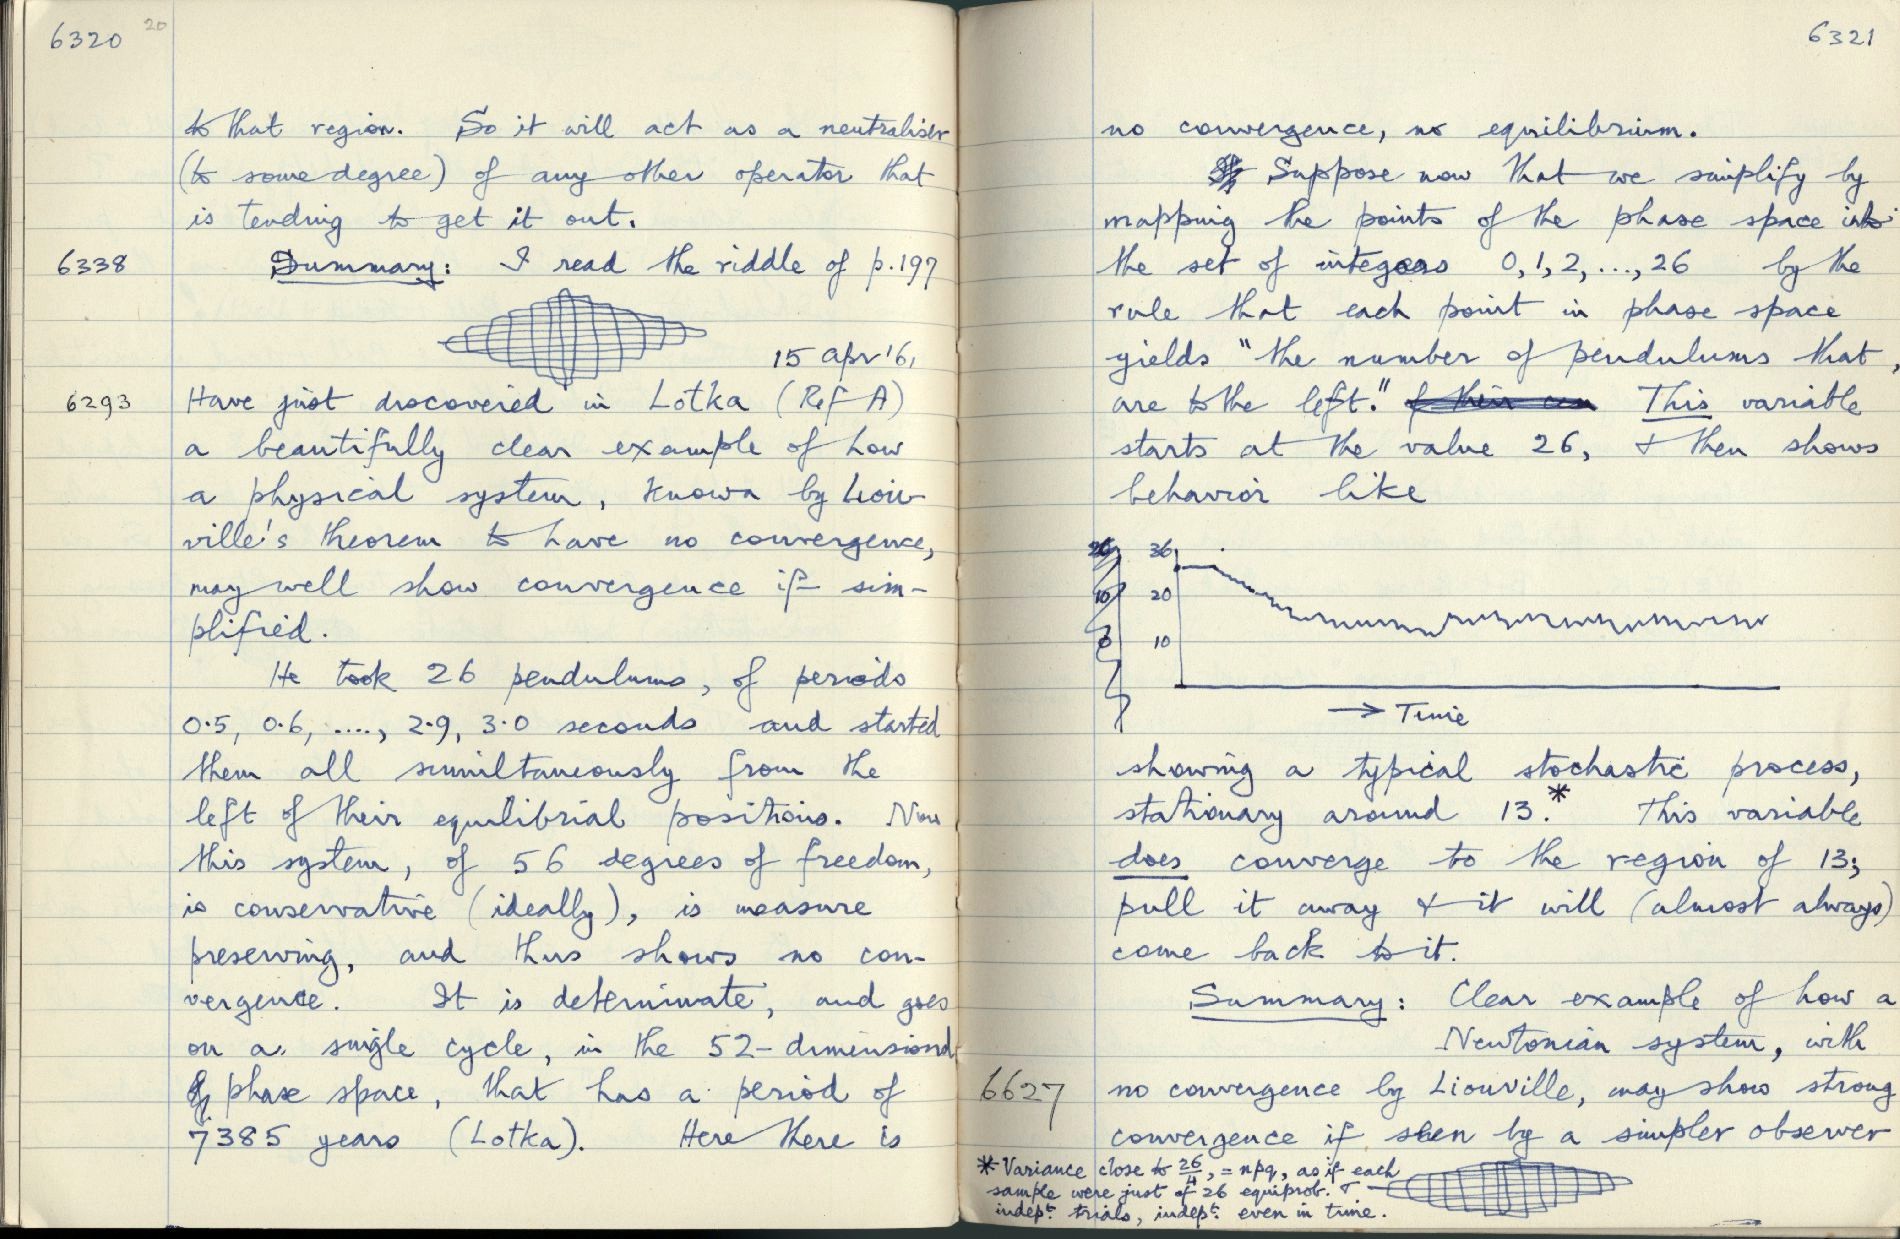 6320 20
to that region. So it will act as a neutraliser
(to some degree) of any other operator that
is tending to get it out.
6338 Summary: I read the riddle of p.197
15 Apr '61
6293 Have just discovered in Lotka (Ref A)
a beautifully clear example of how
a physical system, known by Liou-
ville's theorem to have no convergence,
may well show convergence if sim-
plified.
He took 26 pendulums, of periods
0·5, 0·6, ...., 2·9, 3·0 seconds and started
them all simultaneously from the
left of their equilibrial positions. Now
this system, of 56 degrees of freedom,
is conservative (ideally), is measure
preserving, and thus shows no con-
vergence. It is determinate, and goes
on a single cycle, in the 52-dimensional
phase space, that has a period of
7385 years (Lotka). Here there is
6321
no convergence, no equilibrium.
Suppose now that we simplify by
mapping the points of the phase space into
the set of integers 0, 1, 2, ..., 26 by the
rule that each point in phase space
yields "the number of pendulums that
are to the left." of their cen This variable
starts at the value 26, & then shows
behavior like
20 36
10 20
0 10
→ Time
showing a typical stochastic process,
stationary around 13.* This variable
does converge to the region of 13;
pull it away & it will (almost always)
come back to it.
Summary: Clear example of how a
Newtonian system, with
6627 no convergence by Liouville, may show strong
convergence if seen by a simpler observer
* Variance close to 26/4, = npq, as if each
sample were just of 26 equiprob. &
indept. trials, indept. even in time.